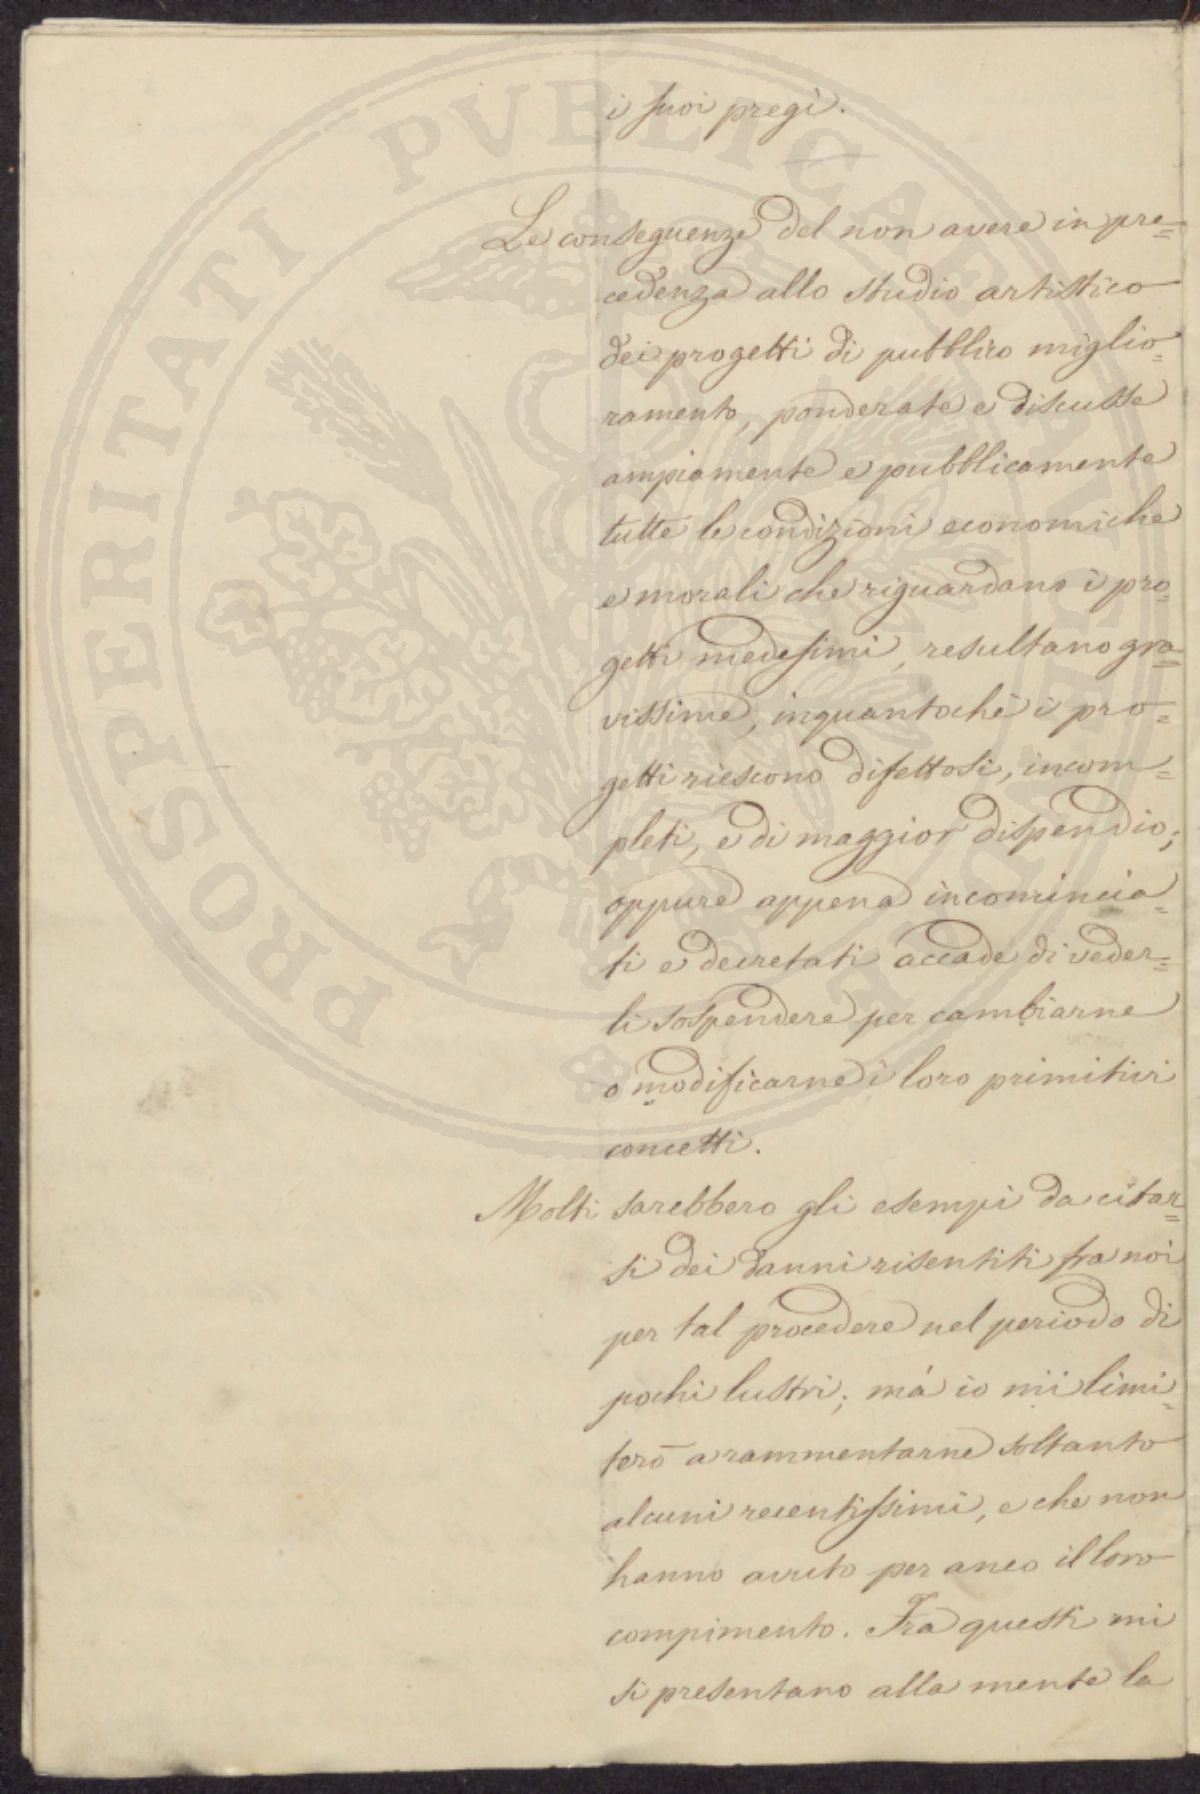 i suoi pregi.
Le conseguenze del non avere in pre=
cedenza allo studio artistico
dei progetti di pubblico miglio=
ramento, ponderate e discusse
ampiamente e pubblicamente
tutte le condizioni economiche
e morali che riguardano i pro=
getti medesimi, resultano gra=
vissime, inquantochè i pro=
getti riescono difettosi, incom=
pleti, e di maggior dispendio;
oppure appena incomincia=
ti e decretati accade di veder=
li sospendere per cambiarne
o modificarne i loro primitivi
concetti.
Molti sarebbero gli esempi da citar=
si dei danni risentiti fra noi
per tal procedere nel periodo di
pochi lustri; má io mi limi=
terò a rammentarne soltanto
alcuni recentissimi, e che non
hanno avuto per anco il loro
compimento. Fra questi mi
si presentano alla mente la
PROSPERITATI PVBLICAE AVGENDAE